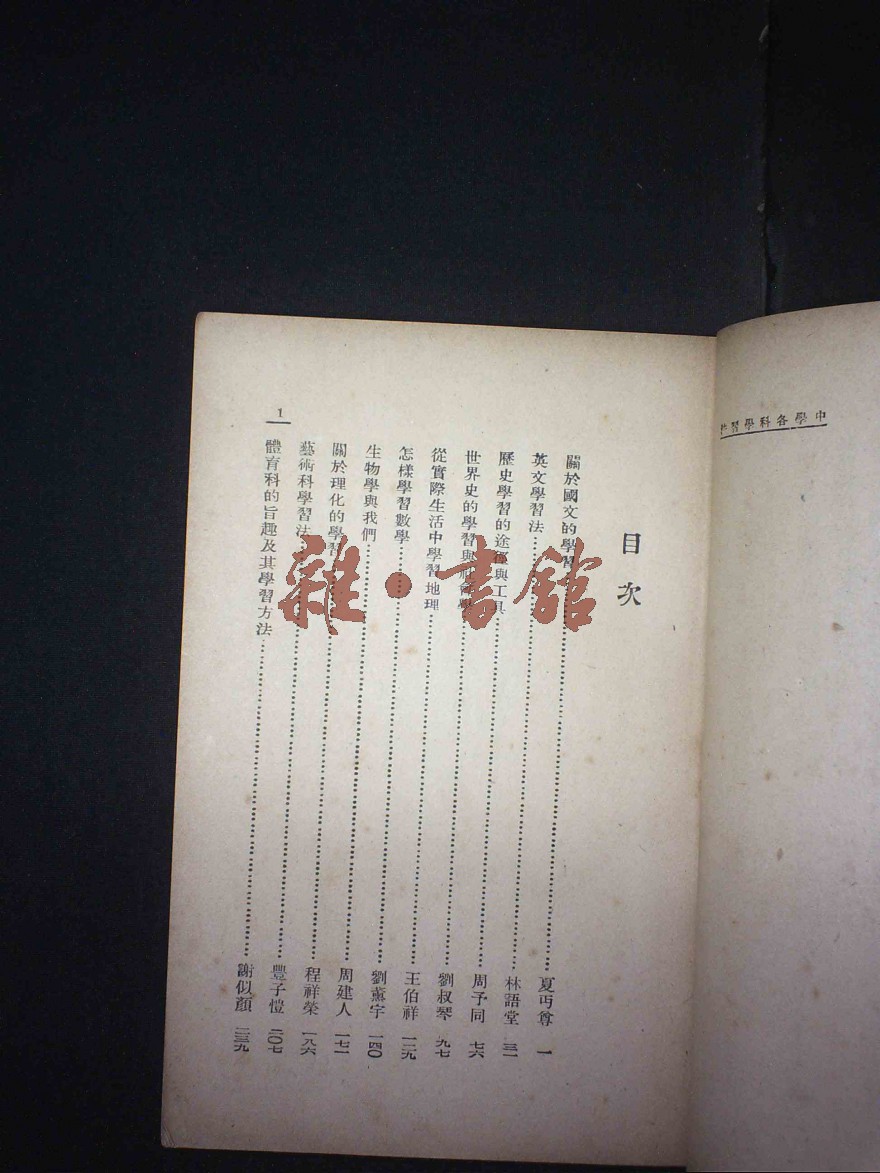 中學各科學習
目次
關於國文的學習……夏丏尊 一
英文學習法……林語堂 三一
歷史學習的途徑與工具……周予同 七六
世界史的學習與社會學……劉叔琴 九七
從實際生活中學習地理……王伯祥 一二九
怎樣學習數學……劉薰宇 一四〇
生物學與我們……周建人 一七一
關於理化的學習……程祥榮 一八六
藝術科學習法……豐子愷 二〇七
體育科的旨趣及其學習方法……謝似顏 二三九
1
雜·書館